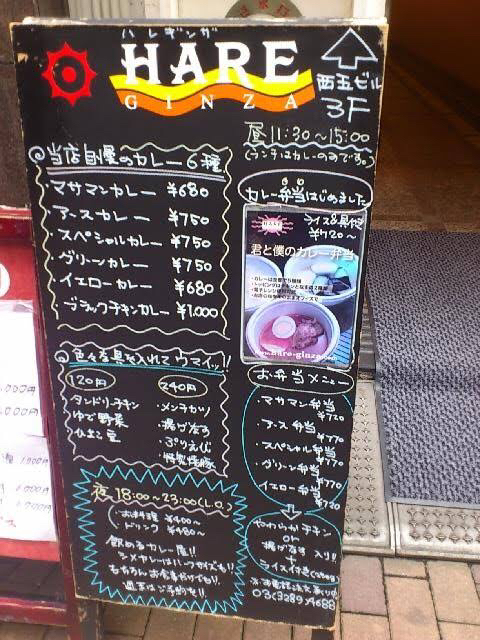 ハレギンザ
HARE
GINZA
西五ビル
3F
昼11:30~15:00
(ランチはカレーのみです。)
当店自慢のカレー6種
・マサマンカレー ¥680
・アースカレー ¥750
・スペシャルカレー ¥750
・グリーンカレー ¥750
・イエローカレー ¥680
・ブラックチキンカレー ¥1,000
カレー弁当はじめました
ライス&具付
¥720~
君と僕のカレー弁当
www.hare-ginza.com
色々な具を入れてウマイッ!!
120円
・タンドリーチキン
・ゆで野菜
・ひよこ豆
240円
・メンチカツ
・揚げなす
・ぷりえび
お弁当メニュー
・マサマン弁当 ¥720
・アース弁当 ¥770
・スペシャル弁当 ¥770
・グリーン弁当 ¥770
・イエロー弁当 ¥720
やわらかチキン
or
揚げなす 入り!!
ライス付き
夜 18:00~23:00(L.O.)
お料理 ¥400~
ドリンク ¥480~
飲めるカレー屋!!
シメカレーはハーフサイズも!!
もちろんお食事だけでも!!
週末はご予約を!!
03(3289)4688